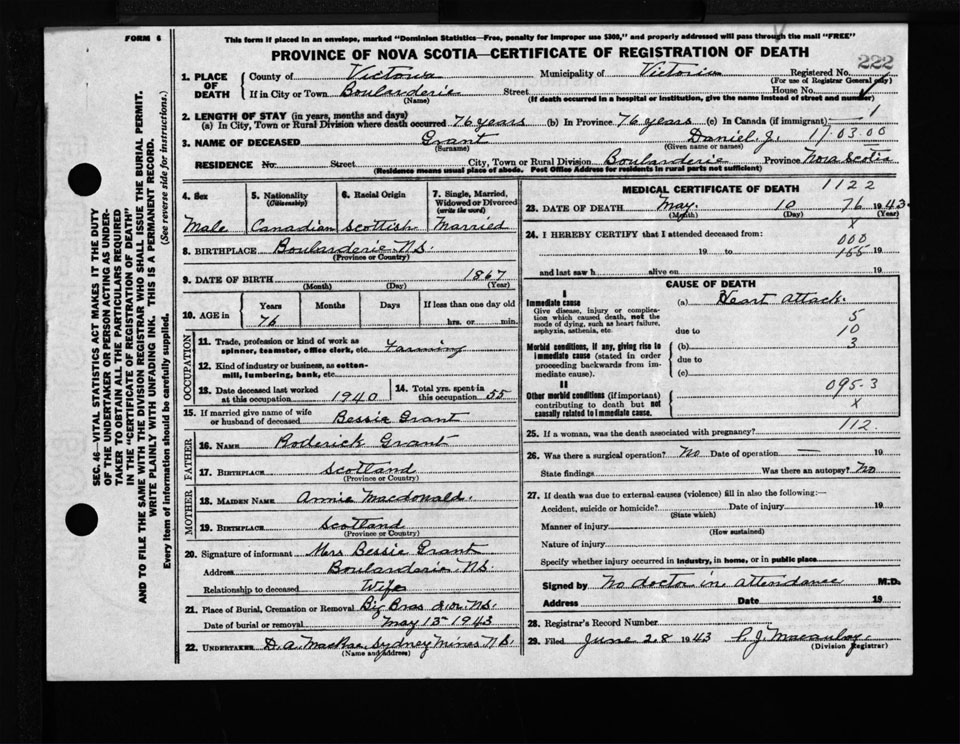 FORM 6
This form if placed in an envelope, marked "Dominion Statistics—Free, penalty for improper use $300," and properly addressed will pass through the mail "FREE"
PROVINCE OF NOVA SCOTIA—CERTIFICATE OF REGISTRATION OF DEATH
222
1. PLACE OF DEATH
County of Victoria Municipality of Victoria Registered No.
(For use of Registrar General only)
If in City or Town Boularderie Street House No.
(Name) (If death occurred in a hospital or institution, give the name instead of street and number)
2. LENGTH OF STAY (in years, months and days)
(a) In City, Town or Rural Division where death occurred 76 years (b) In Province 76 years (c) In Canada (if immigrant) — 1
3. NAME OF DECEASED Grant Daniel J. 17.03.00
(Surname) (Given name or names)
RESIDENCE No. Street City, Town or Rural Division Boularderie Province Nova Scotia
(Residence means usual place of abode. Post Office Address for residents in rural parts not sufficient)
4. Sex
Male
5. Nationality
(Citizenship)
Canadian
6. Racial Origin
Scottish
7. Single, Married, Widowed or Divorced
(write the word)
Married
8. BIRTHPLACE Boularderie N.S.
(Province or Country)
9. DATE OF BIRTH 1867
(Month) (Day) (Year)
10. AGE in
Years Months Days If less than one day old
76 hrs. or min.
OCCUPATION
11. Trade, profession or kind of work as
spinner, teamster, office clerk, etc. Farming
12. Kind of industry or business, as cotton-
mill, lumbering, bank, etc.
13. Date deceased last worked
at this occupation 1940
14. Total yrs. spent in
this occupation 55
15. If married give name of wife
or husband of deceased Bessie Grant
FATHER
16. NAME Roderick Grant
17. BIRTHPLACE Scotland
(Province or Country)
MOTHER
18. MAIDEN NAME Annie Macdonald.
19. BIRTHPLACE Scotland
(Province or Country)
20. Signature of informant Mrs Bessie Grant
Address Boularderie N.S.
Relationship to deceased Wife
21. Place of Burial, Cremation or Removal Big Bras d'or N.S.
Date of burial or removal May 13th 1943
22. UNDERTAKER D. A. MacRae Sydney Mines N.S.
(Name and address)
MEDICAL CERTIFICATE OF DEATH 1122
23. DATE OF DEATH May 10 76 1943
(Month) (Day) (Year)
X
24. I HEREBY CERTIFY that I attended deceased from:
000
19 to 155 19
and last saw h alive on 19
CAUSE OF DEATH
I
Immediate cause
Give disease, injury or complication which caused death, not the mode of dying, such as heart failure, asphyxia, asthenia, etc.
(a) Heart attack.
5
due to 10
Morbid conditions, if any, giving rise to immediate cause (stated in order proceeding backwards from immediate cause).
(b) 3
due to
(c)
II
Other morbid conditions (if important) contributing to death but not causally related to immediate cause.
095.3
X
25. If a woman, was the death associated with pregnancy? 112
26. Was there a surgical operation? No Date of operation —
State findings Was there an autopsy? No
27. If death was due to external causes (violence) fill in also the following:—
Accident, suicide or homicide? Date of injury 19
(State which)
Manner of injury
(How sustained)
Nature of injury
Specify whether injury occurred in industry, in home, or in public place
Signed by No doctor in attendance M.D.
Address Date 19
28. Registrar's Record Number
29. Filed June 28 1943
(Division Registrar)
SEC. 46—VITAL STATISTICS ACT MAKES IT THE DUTY
OF THE UNDERTAKER OR PERSON ACTING AS UNDER-
TAKER TO OBTAIN ALL THE PARTICULARS REQUIRED
IN THE "CERTIFICATE OF REGISTRATION OF DEATH"
AND TO FILE THE SAME WITH THE DIVISION REGISTRAR WHO SHALL ISSUE THE BURIAL PERMIT.
WRITE PLAINLY WITH UNFADING INK. THIS IS A PERMANENT RECORD.
Every item of information should be carefully supplied. (See reverse side for instructions.)